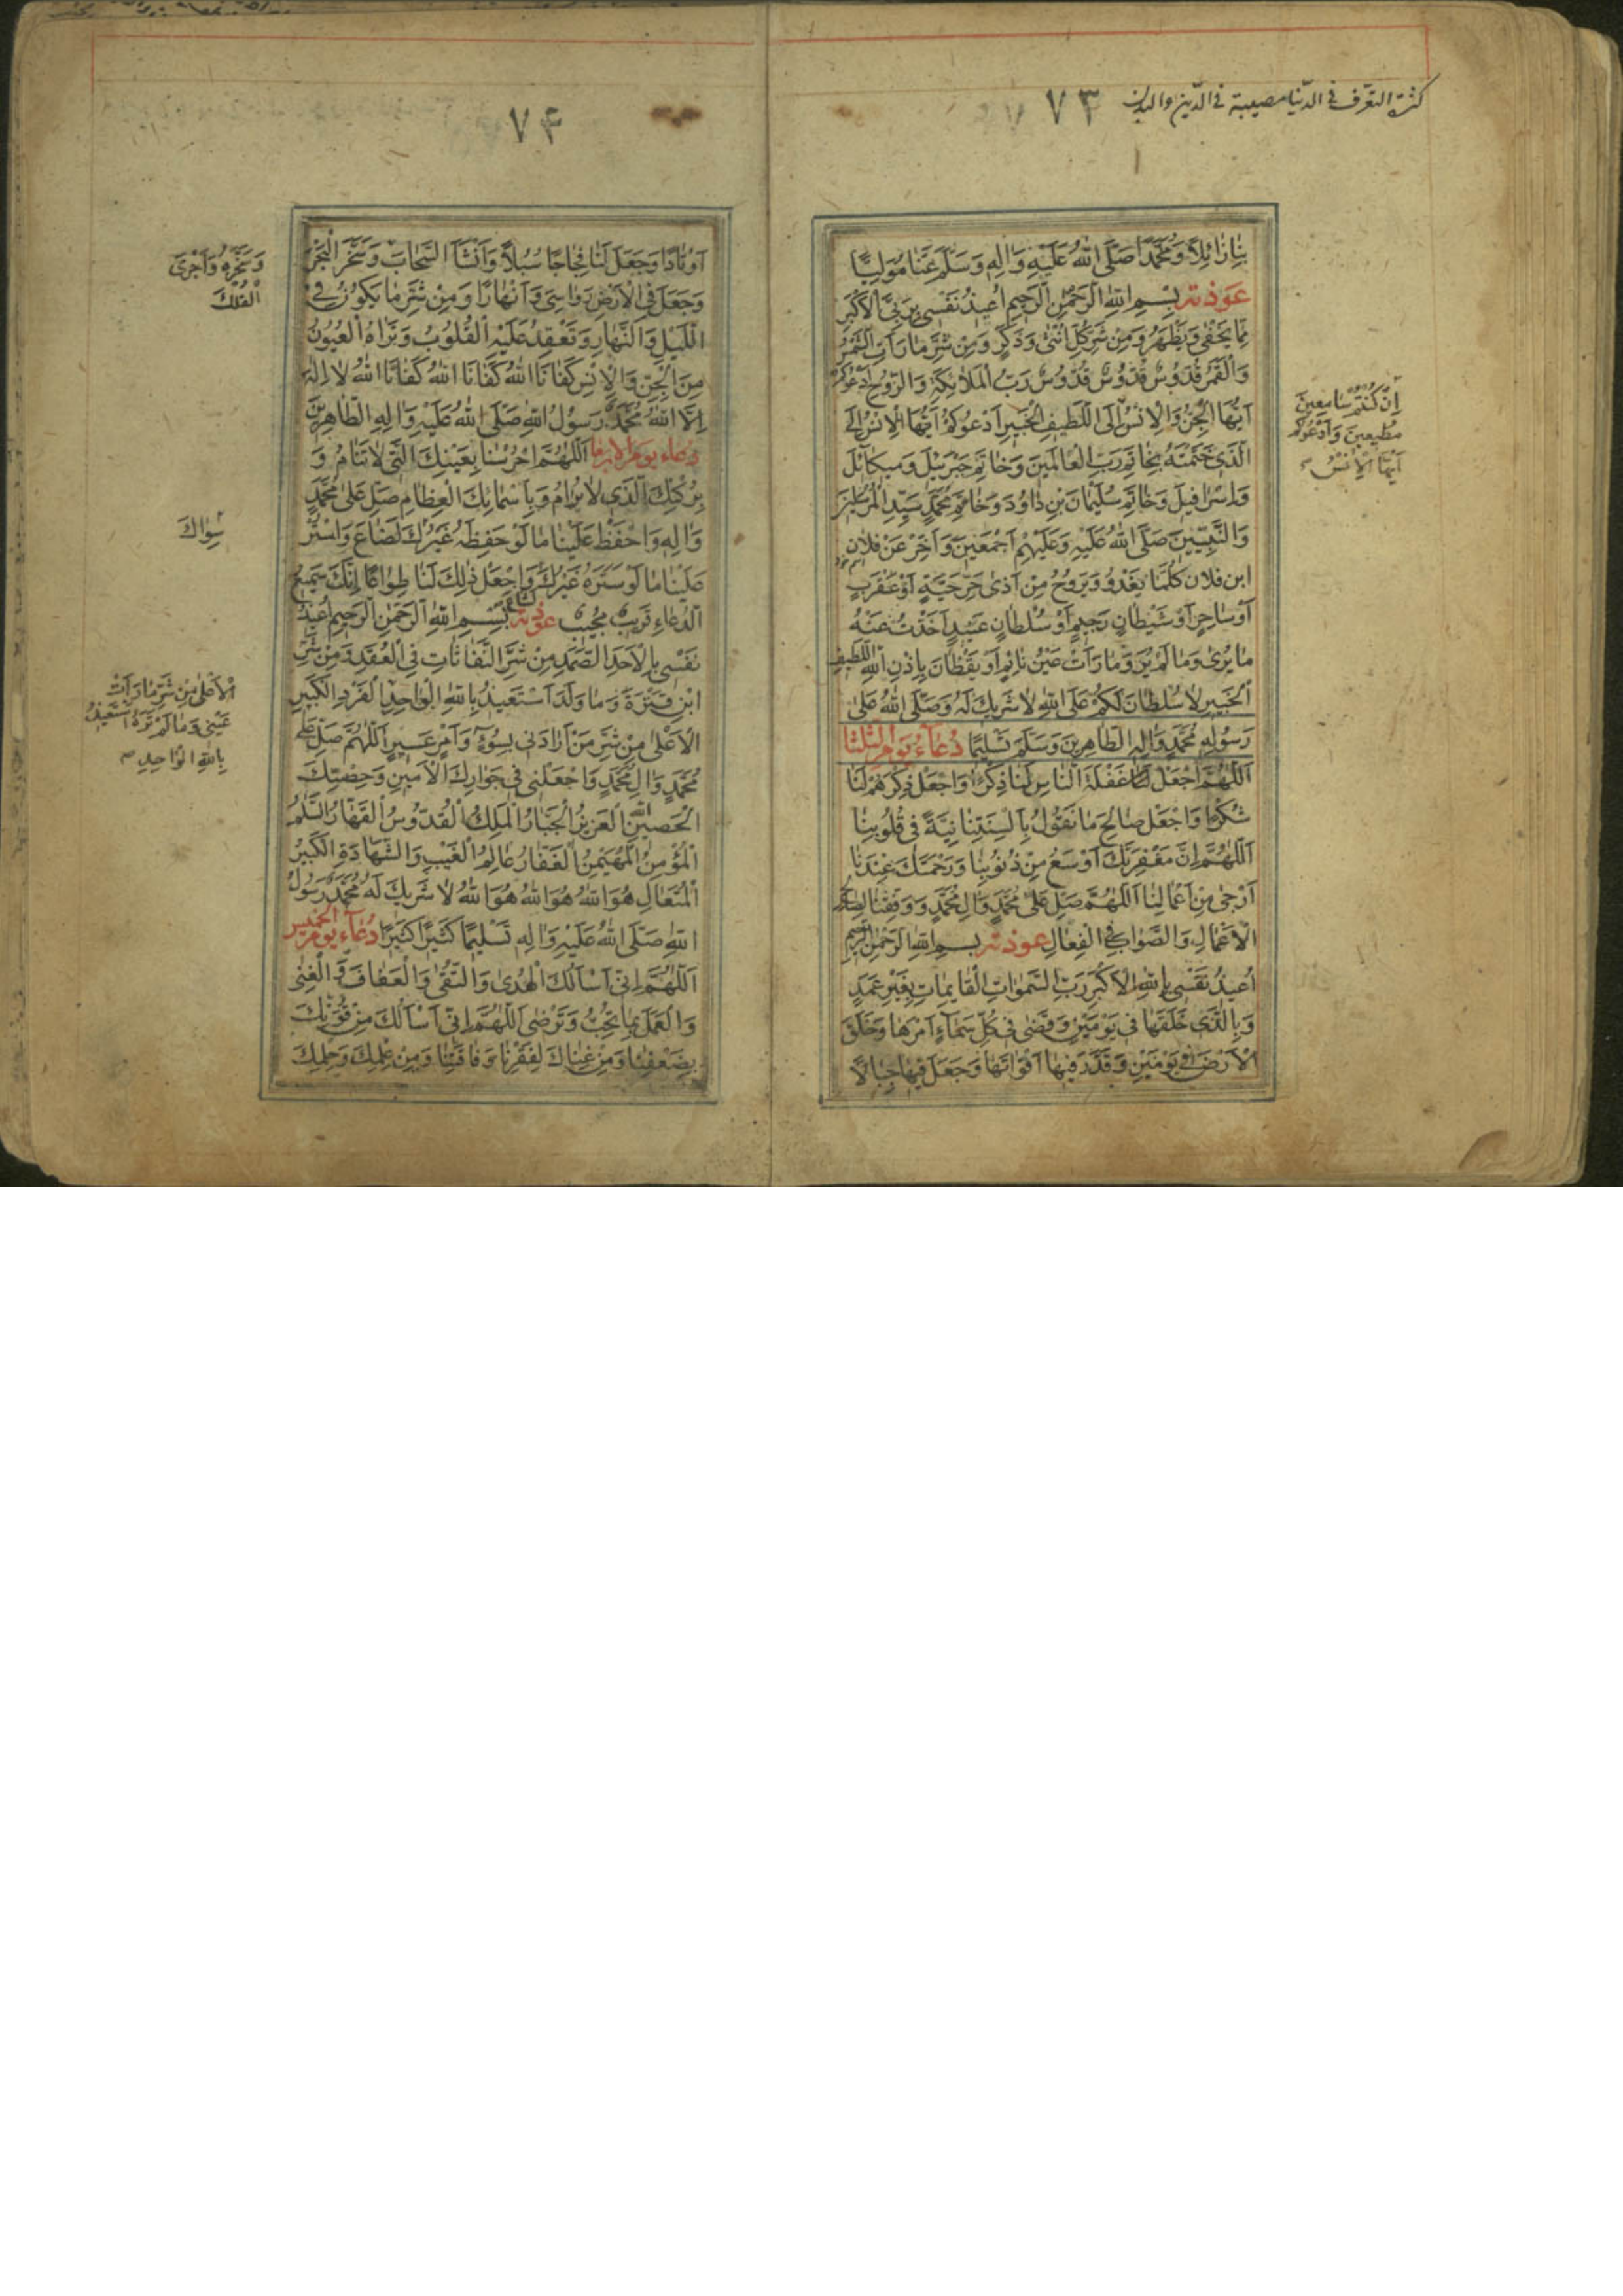 كثرة التعرّف في الدّنيا مصيبة في الدّين والبدن
٧٣
بنا زائلًا وَمُحَمَّدًا صَلَّى اللهُ عَلَيْهِ وَالِهِ وَسَلَّمَ عَنّا مُوَلِّيًا
عَوذته بِسْمِ اللهِ الرَّحْمٰنِ الرَّحِيمِ اُعِيذُ نَفْسِي بِرَبِّيَ الْاَكْبَرِ
مِمّا يَخْفٰى وَيَظْهَرُ وَمِنْ شَرِّ كُلِّ اُنْثٰى وَذَكَرٍ وَمِنْ شَرِّ مٰا رَاَتِ الشَّمْسُ
وَالْقَمَرُ قُدُّوسٌ قُدُّوسٌ قُدُّوسٌ رَبُّ الْمَلَائِكَةِ وَالرُّوحِ اَدْعُوكُمْ
اَيُّهَا الْجِنُّ وَالْاِنْسُ اِلَى اللَّطِيفِ الْخَبِيرِ اَدْعُوكُمْ اَيُّهَا الْاِنْسُ اِلَى
الَّذِي خَتَمْتُهُ بِخَاتَمِ رَبِّ الْعٰالَمِينَ وَخٰاتَمِ جَبْرَئِيلَ وَمِيكٰائِلَ
وَاِسْرٰافِيلَ وَخٰاتَمِ سُلَيْمٰانَ بْنِ دٰاوُدَ وَخٰاتَمِ مُحَمَّدٍ سَيِّدِ الْمُرْسَلِينَ
وَالنَّبِيِّينَ صَلَّى اللهُ عَلَيْهِ وَعَلَيْهِمْ اَجْمَعِينَ وَاَخِّرْ عَنْ فلان
ابن فلان كُلَّمٰا يَغْدُو وَيَرُوحُ مِنْ اَذٰى حَيٍّ حَيَّةٍ اَوْ عَقْرَبٍ
اَوْ سٰاحِرٍ اَوْ شَيْطٰانٍ رَجِيمٍ اَوْ سُلْطٰانٍ عَنِيدٍ اَخَذْتُ عَنْهُ
مٰا يُرٰى وَمٰا لَمْ يُرَ وَمٰا رَاَتْ عَيْنُ نٰائِمٍ اَوْ يَقْظٰانَ بِاِذْنِ اللهِ اللَّطِيفِ
الْخَبِيرِ لٰا سُلْطٰانَ لَكُمْ عَلَى اللهِ لٰا شَرِيكَ لَهُ وَصَلَّى اللهُ عَلٰى
رَسُولِهِ مُحَمَّدٍ وَالِهِ الطّٰاهِرِينَ وَسَلَّمَ تَسْلِيمًا دُعٰاءُ يَوْمِ الثَّلثا
اَللّٰهُمَّ اجْعَلْ غَفْلَةَ النّٰاسِ لَنٰا ذِكْرًا وَاجْعَلْ ذِكْرَهُمْ لَنٰا
شُكْرًا وَاجْعَلْ صٰالِحَ مٰا نَقُولُ بِاَلْسِنَتِنٰا نِيَّةً فِي قُلُوبِنٰا
اَللّٰهُمَّ اِنَّ مَغْفِرَتَكَ اَوْسَعُ مِنْ ذُنُوبِنٰا وَرَحْمَتَكَ عِنْدَنٰا
اَرْجٰى مِنْ اَعْمٰالِنٰا اَللّٰهُمَّ صَلِّ عَلٰى مُحَمَّدٍ وَالِ مُحَمَّدٍ وَوَفِّقْنٰا لِصٰالِحِ
الْاَعْمٰالِ وَالصَّوٰابِ فِي الْفِعٰالِ عوذته بِسْمِ اللهِ الرَّحْمٰنِ الرَّحِيمِ
اُعِيذُ نَفْسِي بِاللهِ الْاَكْبَرِ رَبِّ السَّمٰوٰاتِ الْقٰائِمٰاتِ بِغَيْرِ عَمَدٍ
وَبِالَّذِي خَلَقَهٰا فِي يَوْمَيْنِ وَقَضٰى فِي كُلِّ سَمٰاءٍ اَمْرَهٰا وَخَلَقَ
الْاَرْضَ فِي يَوْمَيْنِ وَقَدَّرَ فِيهٰا اَقْوٰاتَهٰا وَجَعَلَ فِيهٰا جِبٰالًا
اِنْ كُنْتُمْ سٰامِعِينَ
مُطِيعِينَ وَاَدْعُوكُمْ
اَيُّهَا الْاِنْسُ
٧۴
اَوْتٰادًا وَجَعَلَ لَنٰا فِجٰاجًا سُبُلًا وَاَنْشَاَ السَّحٰابَ وَسَخَّرَ الْبَحْرَ
وَجَعَلَ فِي الْاَرْضِ رَوٰاسِيَ وَاَنْهٰارًا وَمِنْ شَرِّ مٰا يَكُونُ فِي
اللَّيْلِ وَالنَّهٰارِ وَتَعْقِدُ عَلَيْهِ الْقُلُوبُ وَتَرٰاهُ الْعُيُونُ
مِنَ الْجِنِّ وَالْاِنْسِ كَفٰانَا اللهُ كَفٰانَا اللهُ كَفٰانَا اللهُ لٰا اِلٰهَ
اِلَّا اللهُ مُحَمَّدٌ رَسُولُ اللهِ صَلَّى اللهُ عَلَيْهِ وَالِهِ الطّٰاهِرِينَ
دُعٰاء يَوم الاربعا اَللّٰهُمَّ احْرُسْنٰا بِعَيْنِكَ الَّتِي لٰا تَنٰامُ وَ
بِرُكْنِكَ الَّذِي لٰا يُرٰامُ وَبِاَسْمٰائِكَ الْعِظٰامِ صَلِّ عَلٰى مُحَمَّدٍ
وَالِهِ وَاحْفَظْ عَلَيْنٰا مٰا لَوْ حَفِظَهُ غَيْرُكَ لَضٰاعَ وَاسْتُرْ
عَلَيْنٰا مٰا لَوْ سَتَرَهُ غَيْرُكَ شٰاعَ وَاجْعَلْ ذٰلِكَ لَنٰا طِوٰاعًا اِنَّكَ سَمِيعُ
الدُّعٰاءِ قَرِيبٌ مُجِيبٌ عوذته بِسْمِ اللهِ الرَّحْمٰنِ الرَّحِيمِ اُعِيذُ
نَفْسِي بِالْاَحَدِ الصَّمَدِ مِنْ شَرِّ النَّفّٰاثٰاتِ فِي الْعُقَدِ وَمِنْ شَرِّ
ابْنِ قِتْرَةَ وَمٰا وَلَدَ اَسْتَعِيذُ بِاللهِ الْوٰاحِدِ الْفَرْدِ الْكَبِيرِ
الْاَعْلٰى مِنْ شَرِّ مَنْ اَرٰادَنِي بِسُوءٍ وَاَمْرٍ عَسِيرٍ اَللّٰهُمَّ صَلِّ عَلٰى
مُحَمَّدٍ وَالِ مُحَمَّدٍ وَاجْعَلْنِي فِي جِوٰارِكَ الْاَمِينِ وَحِصْنِكَ
الْحَصِينِ اللهُ الْعَزِيزُ الْجَبّٰارُ الْمَلِكُ الْقُدُّوسُ الْقَهّٰارُ السَّلٰمُ
الْمُؤْمِنُ الْمُهَيْمِنُ الْغَفّٰارُ عٰالِمُ الْغَيْبِ وَالشَّهٰادَةِ الْكَبِيرُ
الْمُتَعٰالِ هُوَ اللهُ هُوَ اللهُ هُوَ اللهُ لٰا شَرِيكَ لَهُ مُحَمَّدٌ رَسُولُ
اللهِ صَلَّى اللهُ عَلَيْهِ وَالِهِ تَسْلِيمًا كَثِيرًا كَثِيرًا دُعٰاء يَوم الخميس
اَللّٰهُمَّ اِنِّي اَسْاَلُكَ الْهُدٰى وَالتُّقٰى وَالْعَفٰافَ وَالْغِنٰى
وَالْعَمَلَ بِمٰا تُحِبُّ وَتَرْضٰى اَللّٰهُمَّ اِنِّي اَسْاَلُكَ مِنْ قُوَّتِكَ
لِضَعْفِنٰا وَمِنْ غِنٰاكَ لِفَقْرِنٰا وَفٰاقَتِنٰا وَمِنْ عِلْمِكَ وَحِلْمِكَ
وَسَخَّرَهُ وَاَجْرَى
الْفُلْكَ
سِوٰاكَ
الْاَعْلٰى مِنْ شَرِّ مٰا رَاَتْ
عَيْنِي وَمٰا لَمْ تَرَهُ اَسْتَعِيذُ
بِاللهِ الْوٰاحِدِ